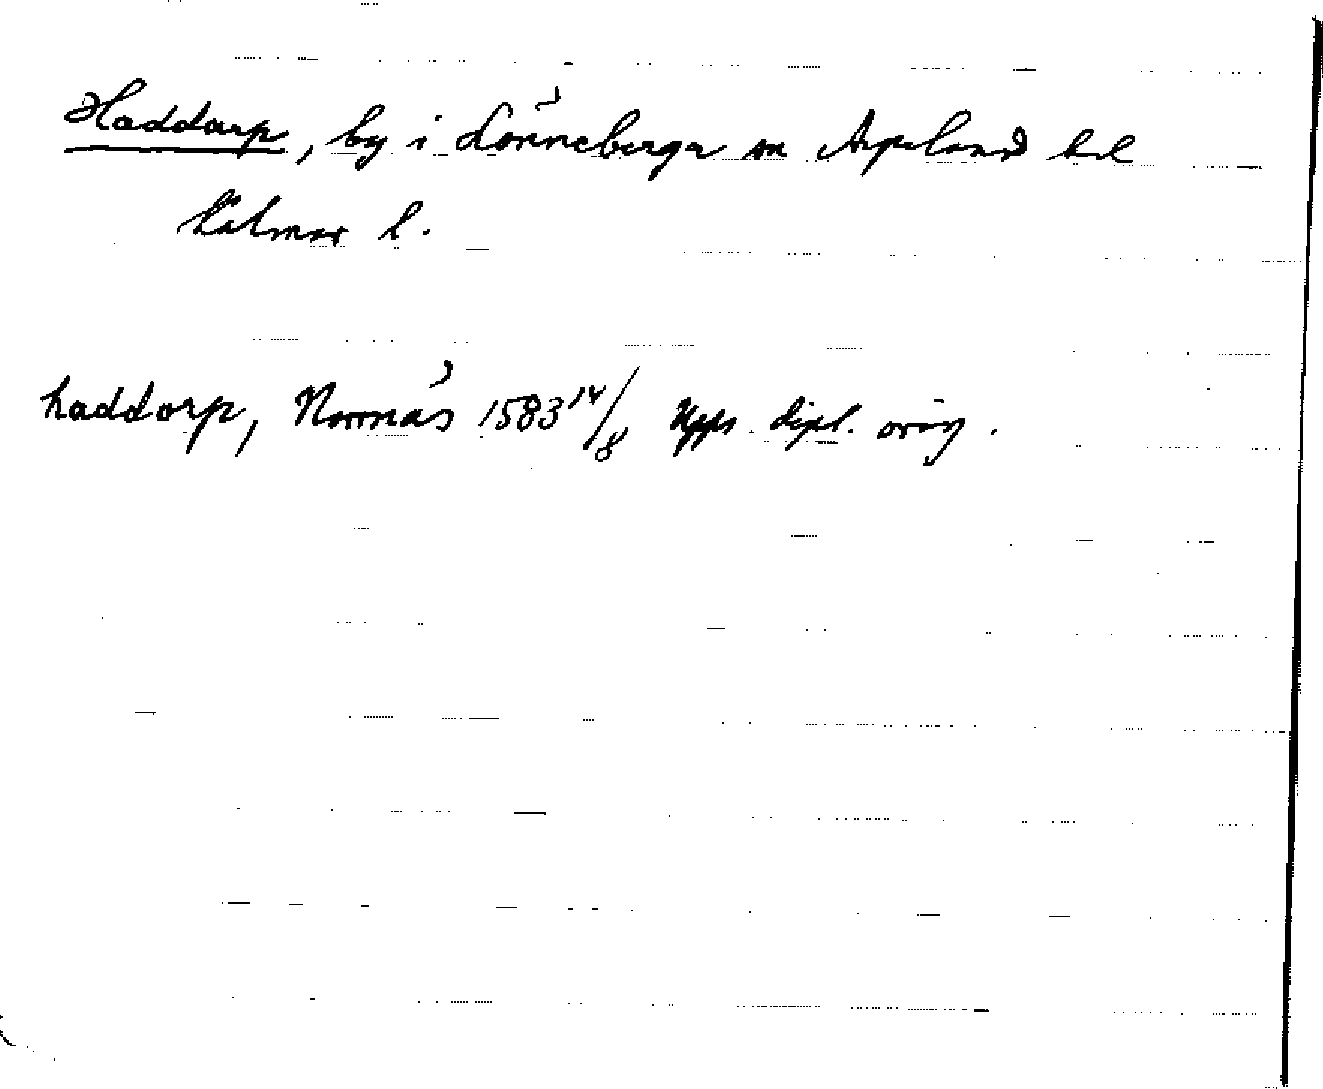 Haddarp, by i Lönneberga sn Aspelands hd
Kalmar l.
haddorp, Normås 1583 14/8 Upps. dipl. orig.